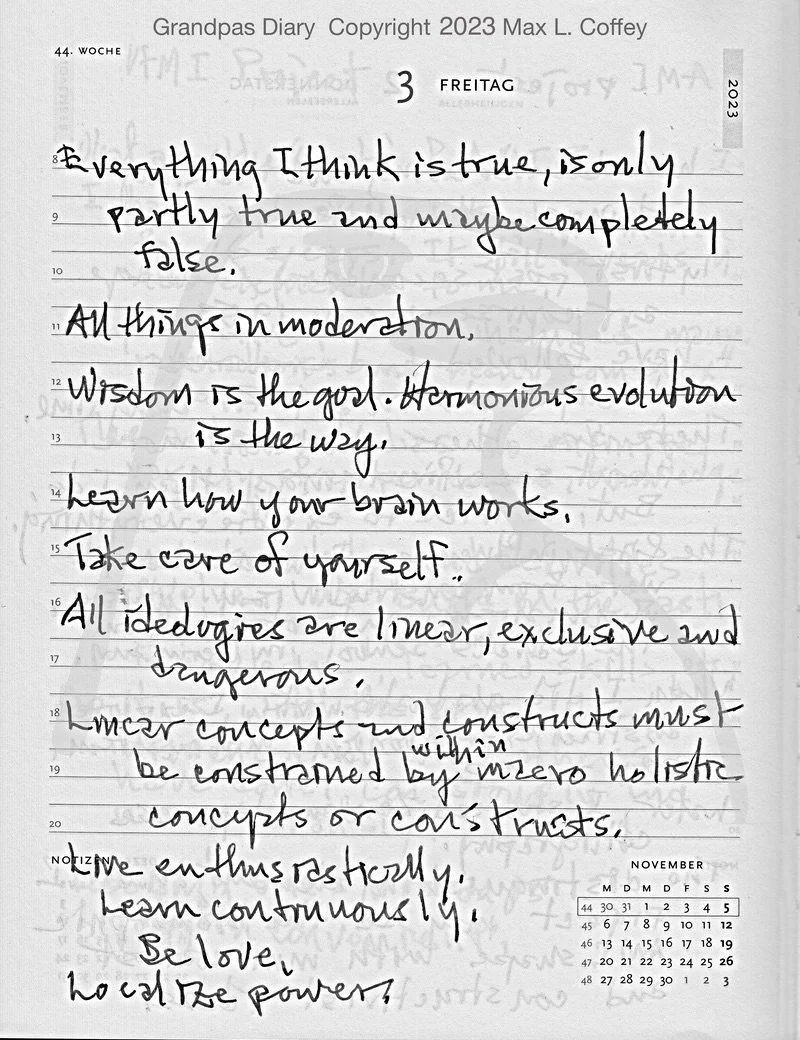 Grandpas Diary Copyright 2023 Max L. Coffey
44. WOCHE
3 FREITAG
2023
8 Everything I think is true, is only
9 partly true and maybe completely
false.
10
11 All things in moderation.
12 Wisdom is the goal. Harmonious evolution
13 is the way.
14 Learn how your brain works.
15 Take care of yourself..
16 All ideologies are linear, exclusive and
17 dangerous.
18 Linear concepts and constructs must
within
19 be constrained by holistic
20 concepts or constructs.
NOTIZEN Live enthusiastically.
Learn continuously.
Be love.
Localize power!
NOVEMBER
M D M D F S S
44 30 31 1 2 3 4 5
45 6 7 8 9 10 11 12
46 13 14 15 16 17 18 19
47 20 21 22 23 24 25 26
48 27 28 29 30 1 2 3